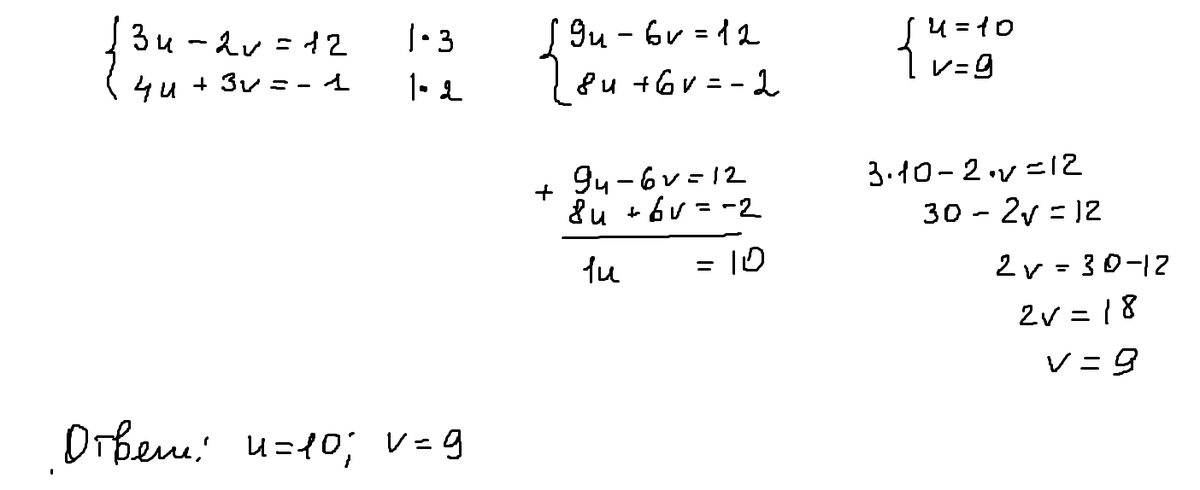 3u - 2v = 12 |·3
4u + 3v = -1 |·2
9u - 6v = 12
8u + 6v = -2
u = 10
v = 9
+ 9u - 6v = 12
8u + 6v = -2
1u = 10
3·10 - 2·v = 12
30 - 2v = 12
2v = 30-12
2v = 18
v = 9
Ответ: u=10; v=9